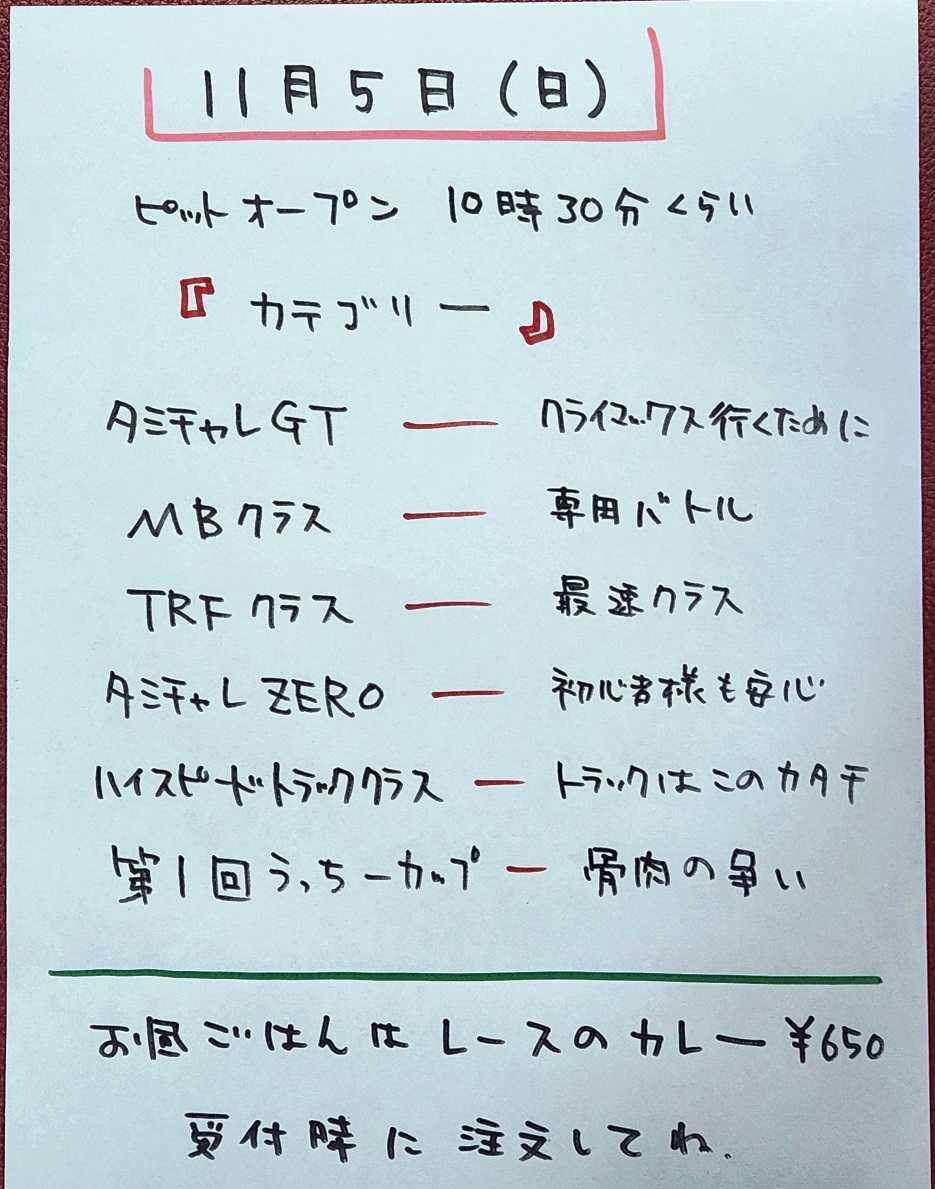 11月5日(日)
ピットオープン 10時30分くらい
『カテゴリー』
タミチャレGT ― クライマックス行くために
MBクラス ― 専用バトル
TRFクラス ― 最速クラス
タミチャレZERO ― 初心者様も安心
ハイスピードトラッククラス ― トラックはこのカタチ
第1回うっちーカップ ― 骨肉の争い
お昼ごはんはレースのカレー ¥650
受付時に注文してね.